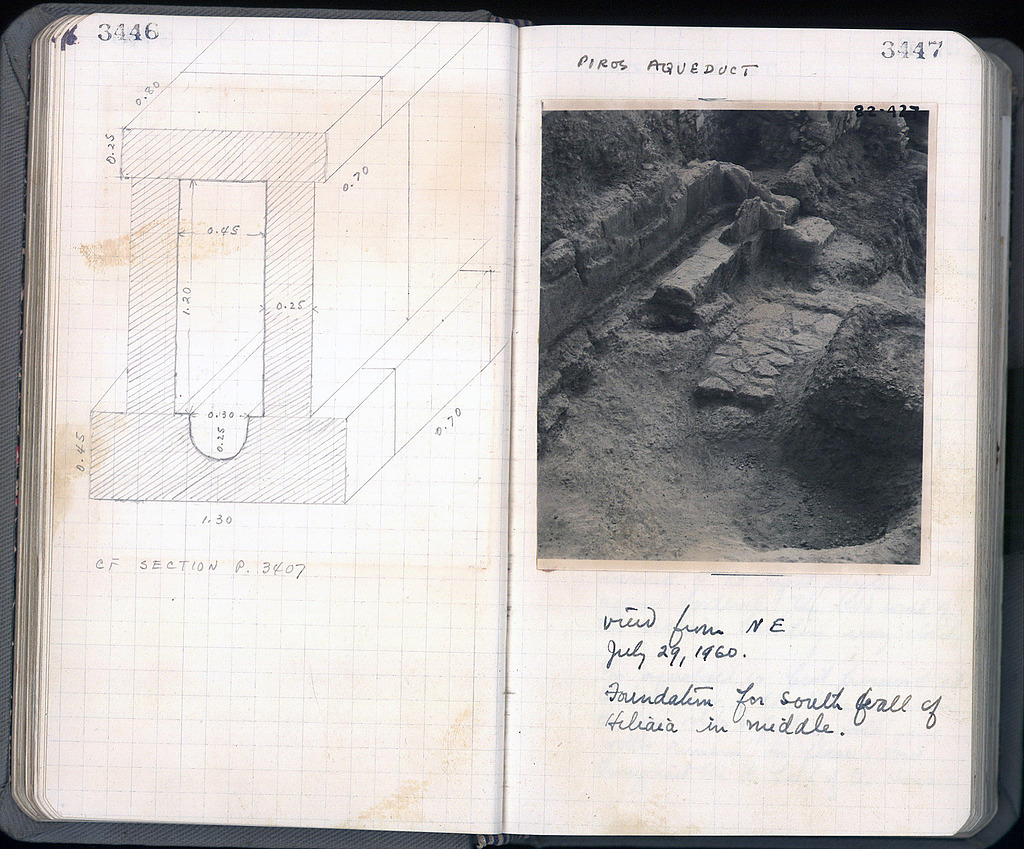 3446
0.80
0.25
0.70
0.45
1.20
0.25
0.30
0.25
0.45
0.70
1.30
CF SECTION P. 3407
3447
PIROS AQUEDUCT
82-427
view from NE
July 29, 1960.
Foundation for south wall of
Heliaia in middle.